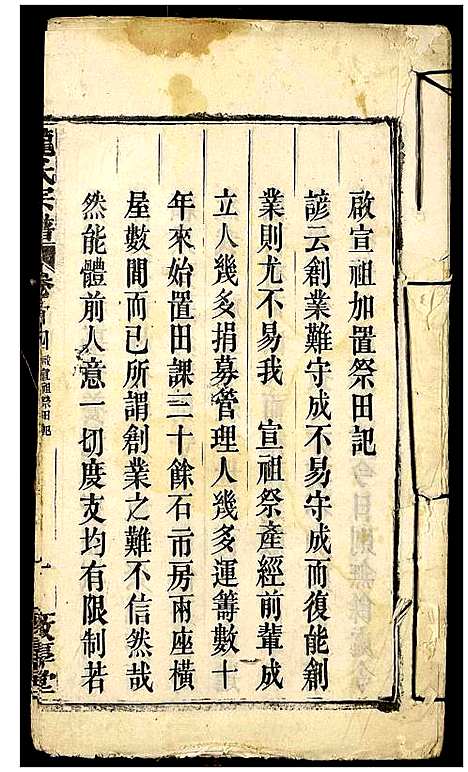 啟宣祖加置祭田記
諺云創業難守成不易守成而復能創
業則尤不易我 宣祖祭產經前輩成
立人幾多捐募管理人幾多運籌數十
年來始置田課三十餘石市房兩座橫
屋數間而已所謂創業之難不信然哉
然能體前人意一切度支均有限制若
龍氏宗譜 卷首四 啟宣祖祭田記
敦厚堂